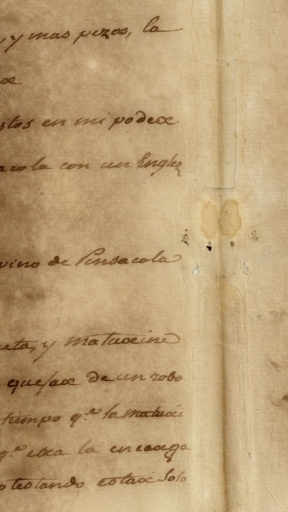 y mas pezos, la
stos en mi podex
acola con un Englez
vino de Pensacola
eta, y matuxine
quejax de un robo
tiempo q.e la matuxi
q.e exa la encaxga
otextando estax Solo